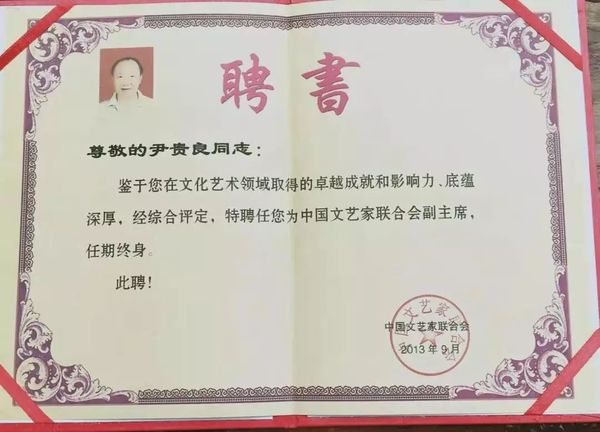 聘書
尊敬的尹贵良同志：
鉴于您在文化艺术领域取得的卓越成就和影响力、底蕴
深厚，经综合评定，特聘任您为中国文艺家联合会副主席，
任期终身。
此聘！
中国文艺家联合会
2013年9月
中国文艺家联合会